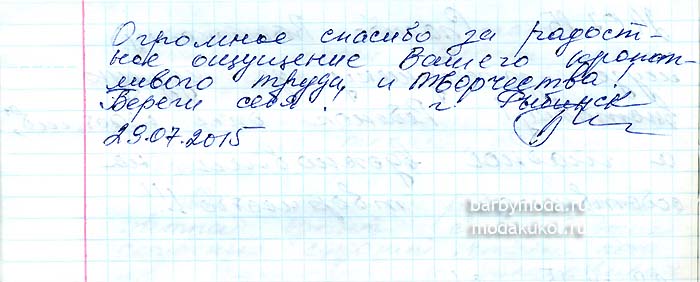 Огромное спасибо за радост-
ное ощущение Вашего кропот-
ливого труда и творчества!
Береги себя! г. Рыбинск
29.07.2015
barbymoda.ru
modakukol.ru